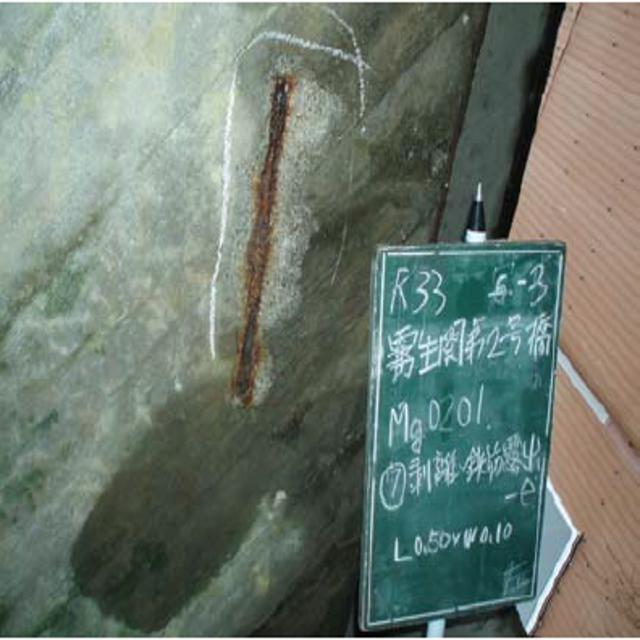 R33 写-3
霧生関第2号橋
Mg0201.
⑦剥離・鉄筋露出
-e
L0.50×W0.10